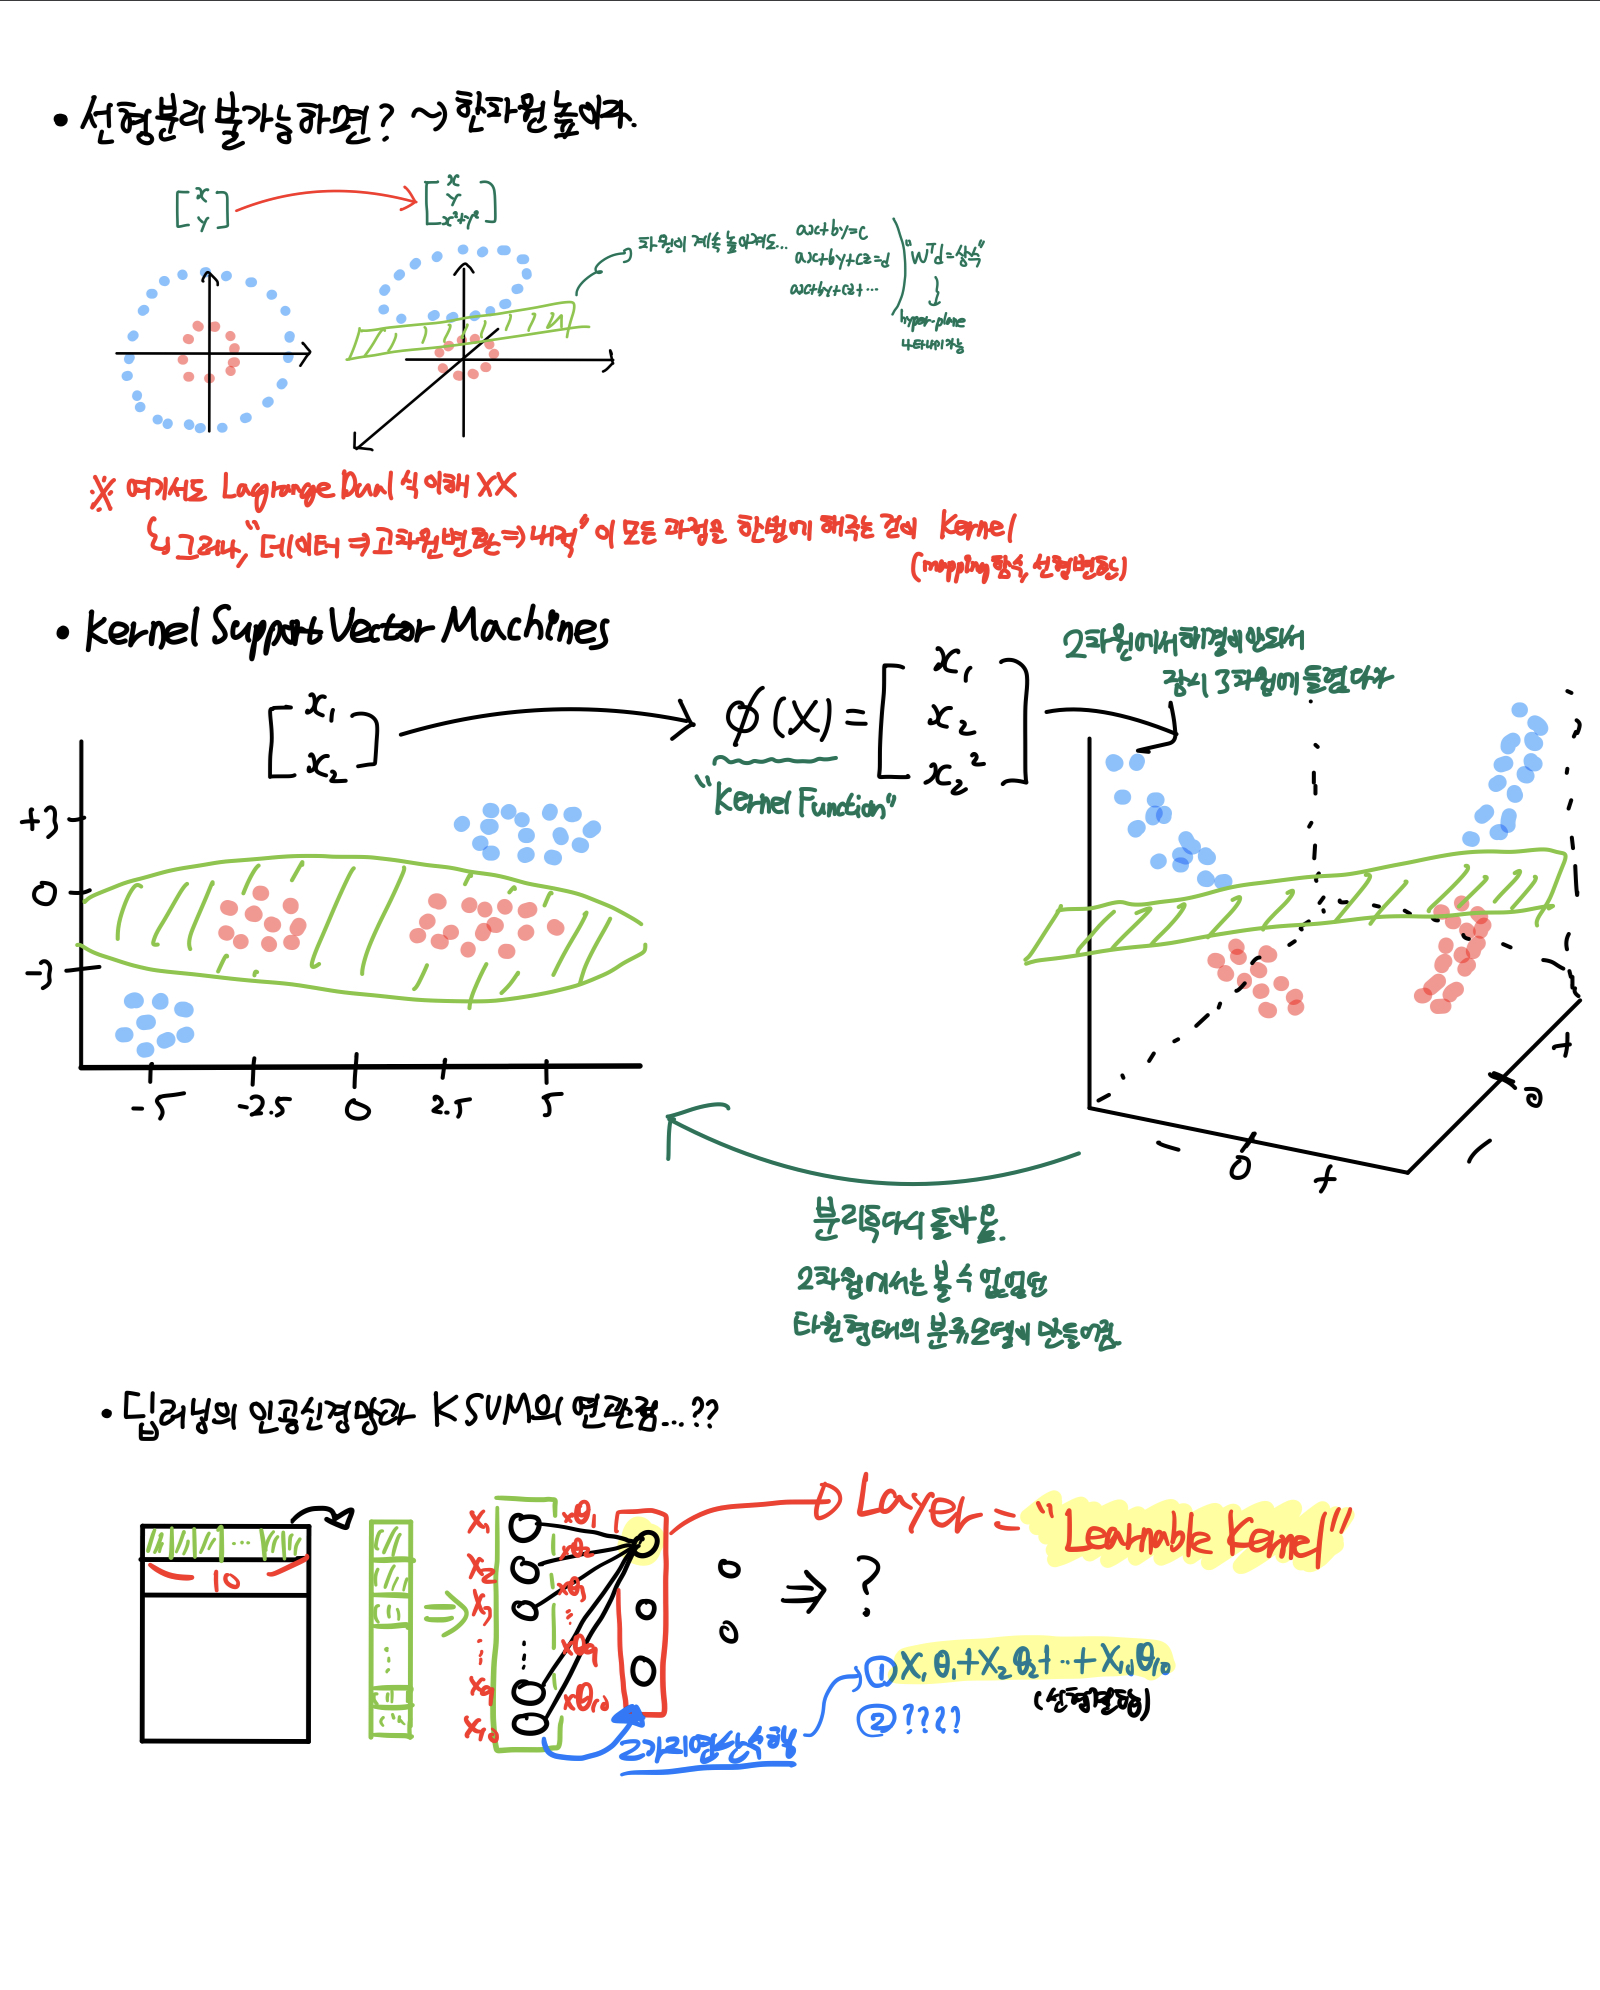 • 선형분리 불가능하면? ~> 한차원 높이주.
[x y]
[x y x²+y²]
차원이 계속 높아져도...
ax+by=c
ax+by+cz=d
ax+by+cz+...
"Wᵀd=상수"
hyper-plane
나타내기 가능
※ 여기서도 Lagrange Dual 식 이해 XX
그러나, "데이터 ⇒ 고차원변환 ⇒ 내적" 이 모든 과정을 한번에 해주는 것이 Kernel
(mapping함수, 선형변환)
• Kernel Support Vector Machines
[x₁ x₂]
φ(X) = [x₁ x₂ x₂²]
"Kernel Function"
2차원에서 해결이 안돼서
잠시 3차원에 들렸다가
+3
0
-3
-5 -2.5 0 2.5 5
- 0 +
- 0 +
분리 후 다시 돌아옴.
2차원에서는 볼 수 없었던
타원형태의 분류모델이 만들어짐.
• 딥러닝의 인공신경망과 KSVM의 연관점...??
10
x₁ x₂ x₃ ⋮ x₉ x₁₀
×θ₁ ×θ₂ ×θ₃ ⋮ ×θ₉ ×θ₁₀
Layer = "Learnable Kernel"
⇒ ?
2가지 연산 수행
① X₁θ₁+X₂θ₂+...+X₁₀θ₁₀
(선형결합)
② ????